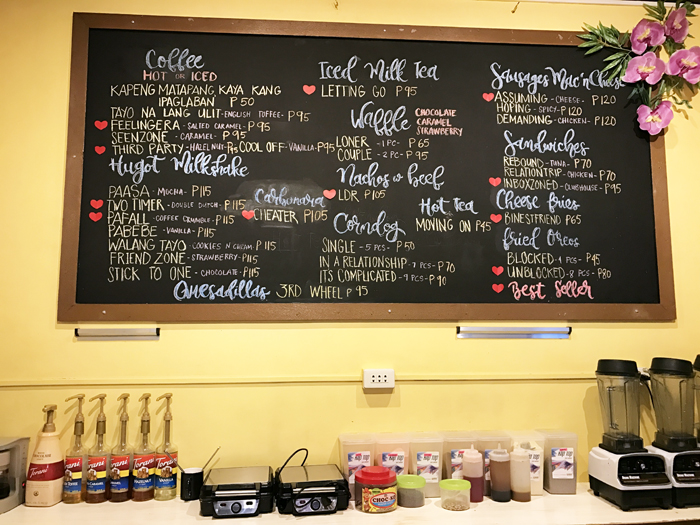 Coffee
HOT OR ICED
KAPENG MATAPANG, KAYA KANG
IPAGLABAN P 50
TAYO NA LANG ULIT - ENGLISH TOFFEE - P 95
FEELINGERA - SALTED CARAMEL - P 95
SEENZONE - CARAMEL - P 95
THIRD PARTY - HAZEL NUT - P95 COOL OFF - VANILLA - P95
Hugot Milkshake
PAASA - MOCHA - P 115
TWO TIMER - DOUBLE DUTCH - P 115
PAFALL - COFFEE CRUMBLE - P 115
PABEBE - VANILLA - P115
WALANG TAYO - COOKIES N CREAM - P 115
FRIEND ZONE - STRAWBERRY - P115
STICK TO ONE - CHOCOLATE - P 115
Quesadillas 3RD WHEEL P 95
Carbonara
CHEATER P 105
Iced Milk Tea
LETTING GO P 95
Waffle CHOCOLATE
CARAMEL
STRAWBERRY
LONER - 1 PC - P 65
COUPLE - 2 PC - P 95
Nachos w Beef
LDR P 105
Hot Tea
MOVING ON P 45
Corndog
SINGLE - 5 PCS - P 50
IN A RELATIONSHIP - 7 PCS - P 70
ITS COMPLICATED - 9 PCS - P 90
Sausages Mac'n Cheese
ASSUMING - CHEESE - P 120
HOPING - SPICY - P 120
DEMANDING - CHICKEN - P 120
Sandwiches
REBOUND - TUNA - P 70
RELATIONTRIP - CHICKEN - P 70
INBOXZONED - CLUBHOUSE - P 95
Cheese fries
BINESTFRIEND P65
fried Oreos
BLOCKED - 4 PCS - P45
UNBLOCKED - 8 PCS - P80
Best Seller
TORANI
TORANI
TORANI
TORANI
TORANI
TORANI
CHOC